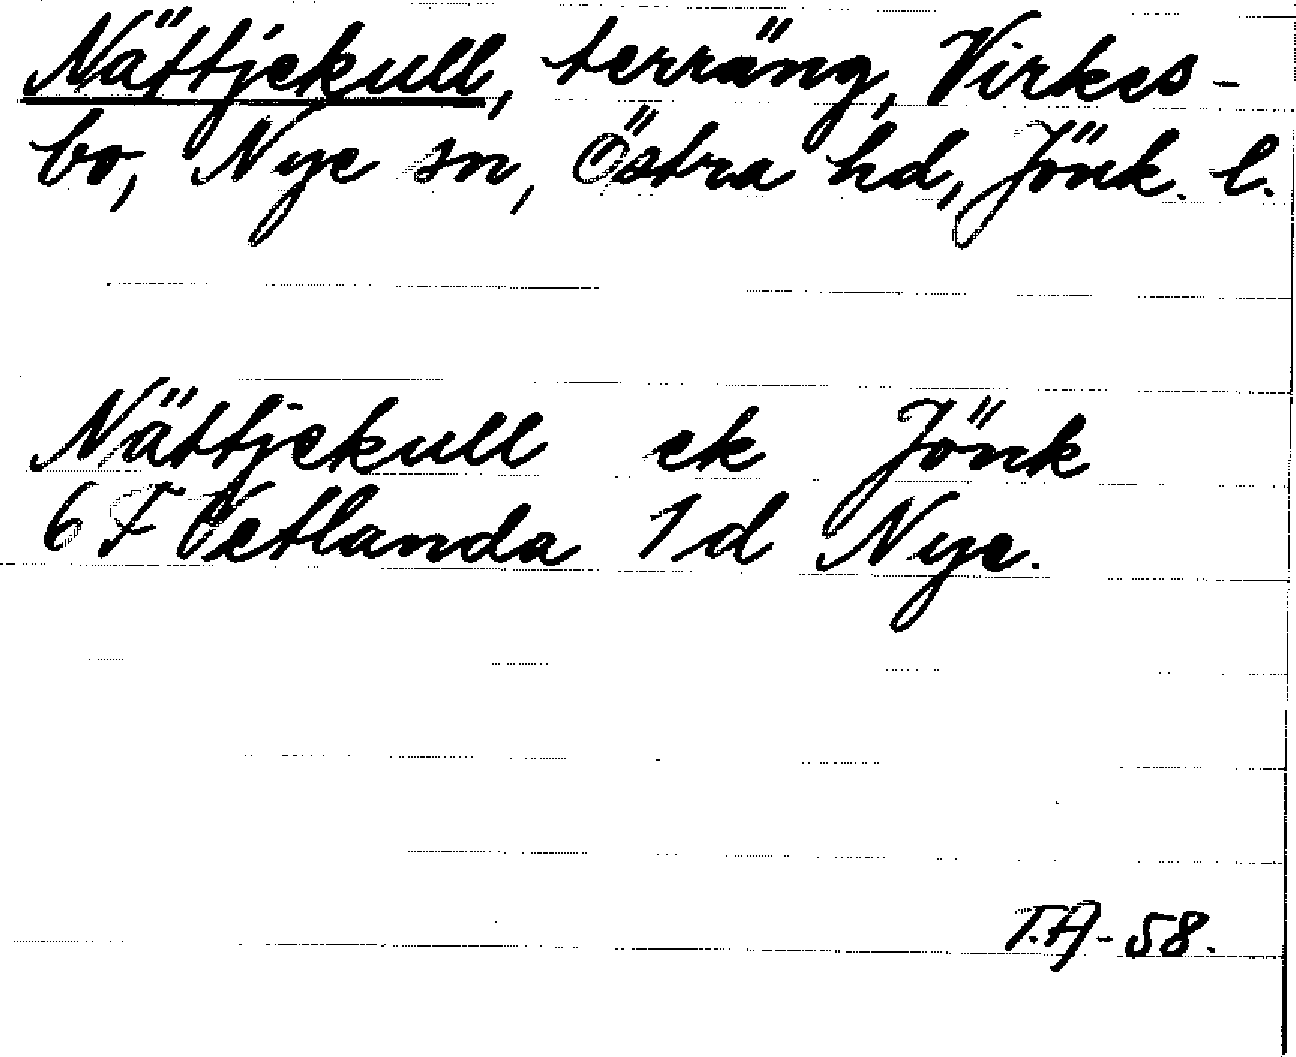 Nättjekull, terräng, Virkes-
bo, Nye sn, Östra hd, Jönk. l.
Nättjekull ek Jönk
6 F Vetlanda 1 d Nye.
T.A-58.